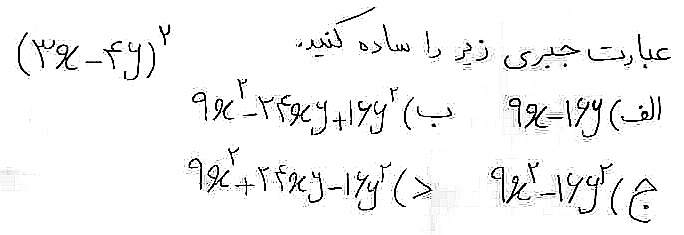 عبارت جبری زیر را ساده کنید. (۳x-۴y)^۲
الف) ۹x-۱۶y ب) ۹x^۲-۲۴xy+۱۶y^۲
ج) ۹x^۲-۱۶y^۲ د) ۹x^۲+۲۴xy-۱۶y^۲